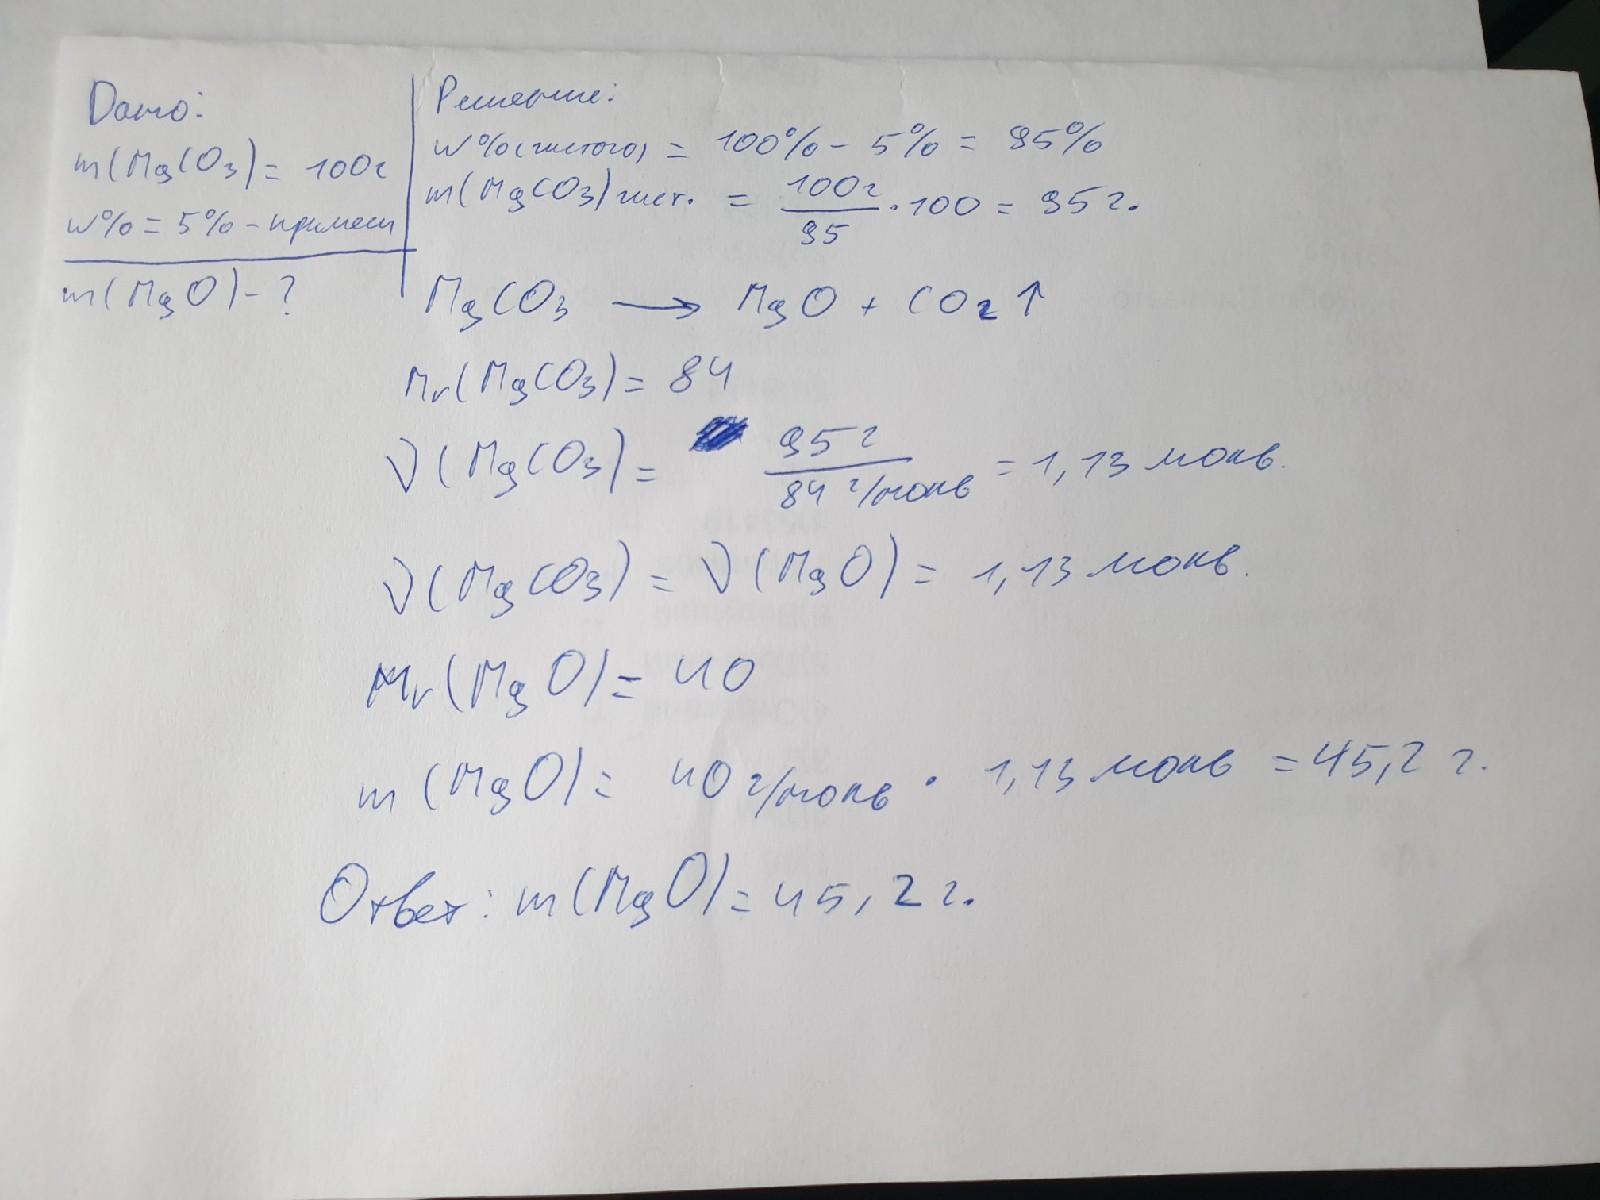 Дано:
m(MgCO3) = 100г
w% = 5% - примеси
m(MgO) - ?
Решение:
w%(чистого) = 100% - 5% = 95%
m(MgCO3)чист. = 100г/95 · 100 = 95г.
MgCO3 → MgO + CO2↑
Mr(MgCO3) = 84
ν(MgCO3) = 95г/84г/моль = 1,13 моль.
ν(MgCO3) = ν(MgO) = 1,13 моль.
Mr(MgO) = 40
m(MgO) = 40г/моль · 1,13 моль = 45,2 г.
Ответ: m(MgO) = 45,2 г.